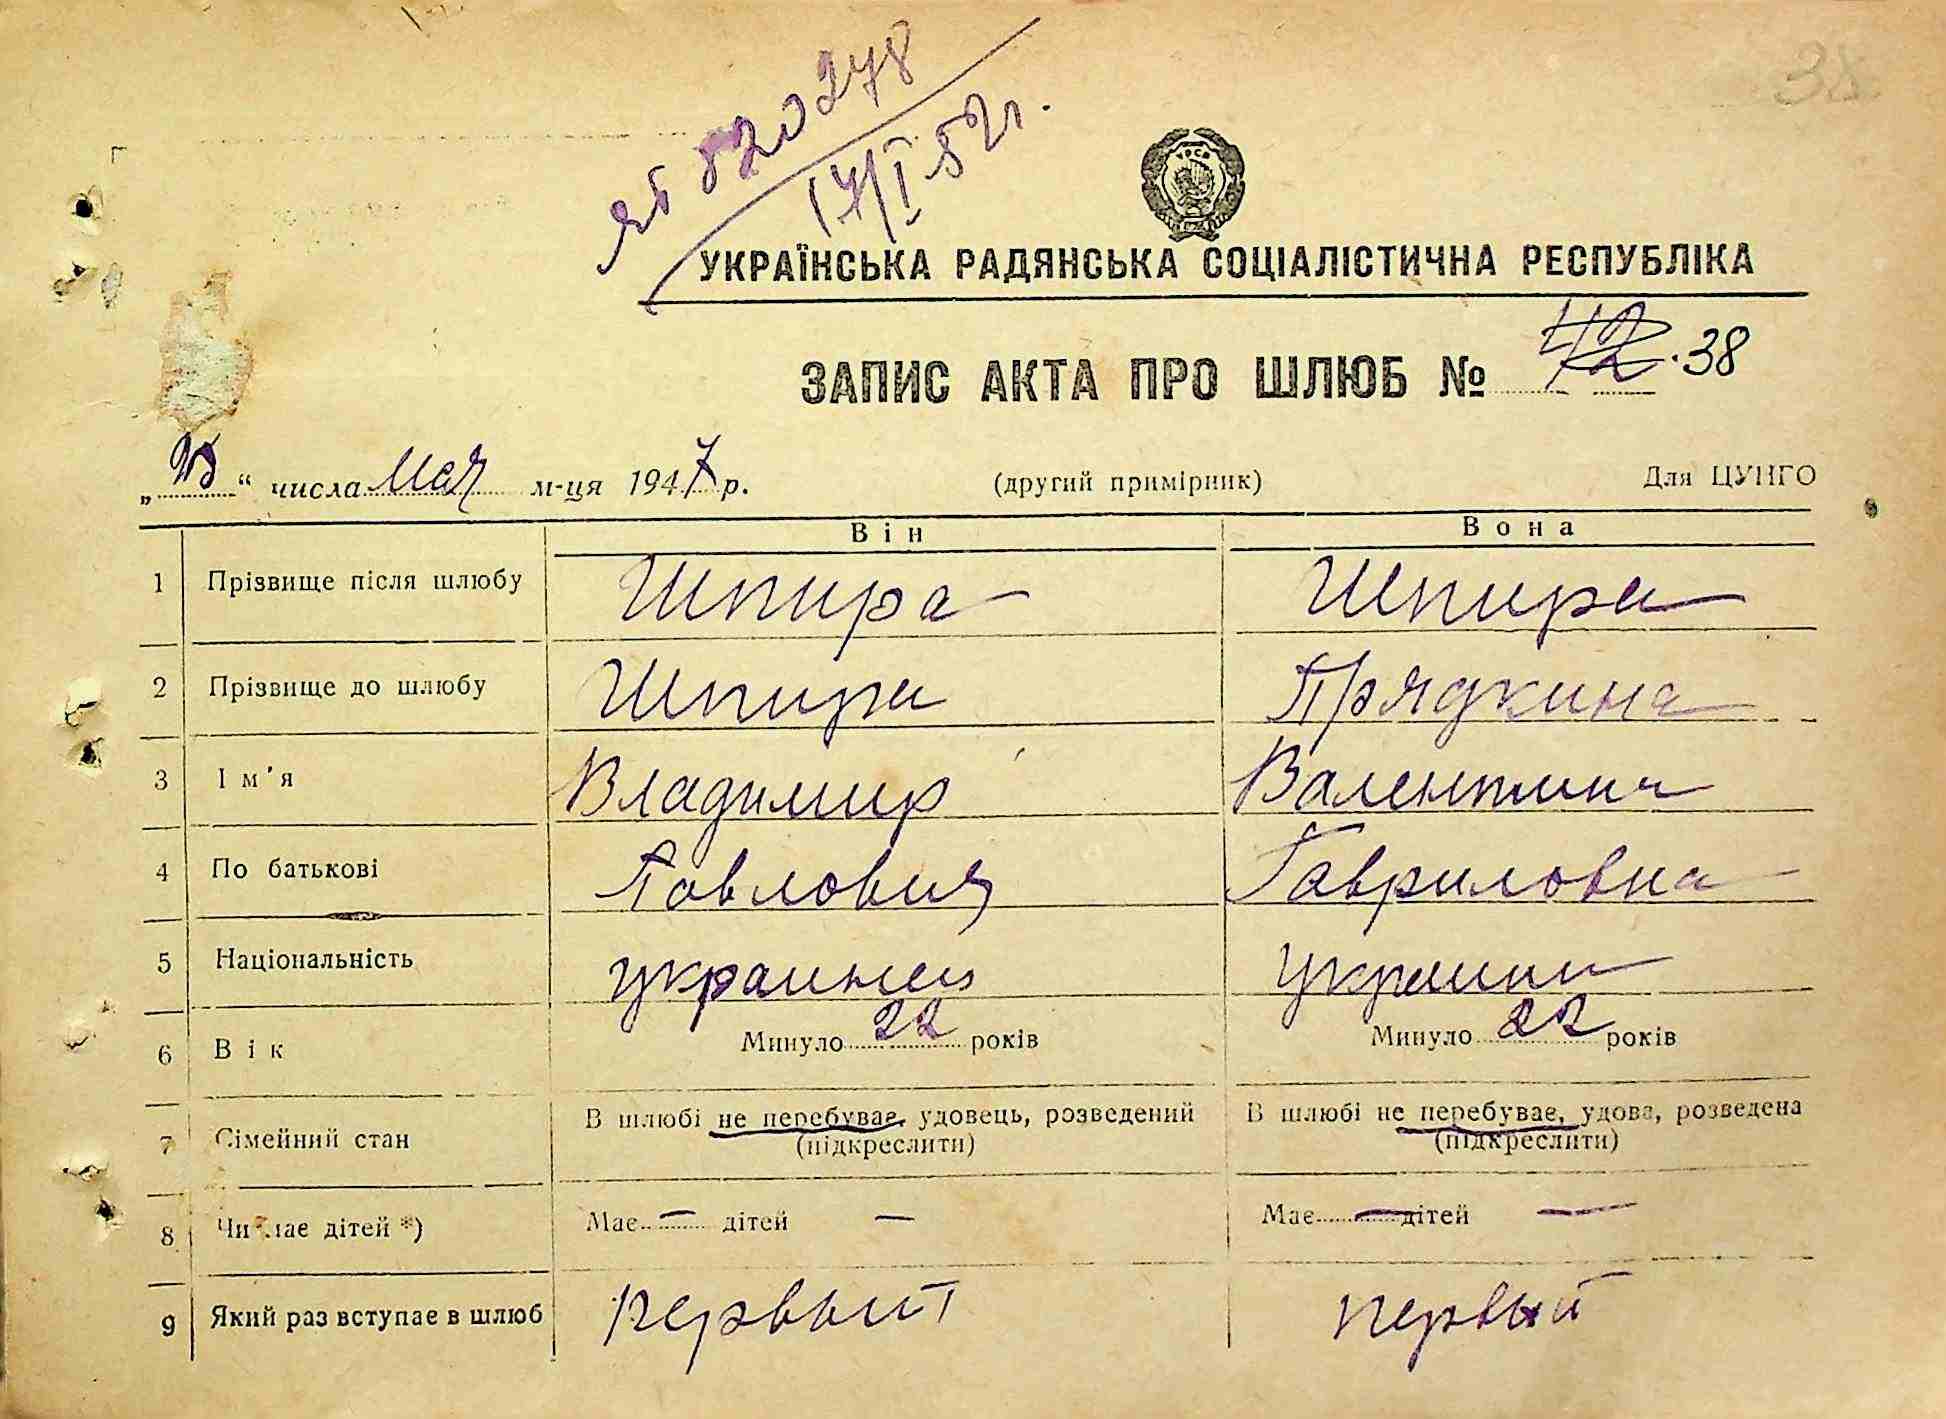 38
ЯБ 820278
17/I 52г.
УКРАЇНСЬКА РАДЯНСЬКА СОЦІАЛІСТИЧНА РЕСПУБЛІКА
ЗАПИС АКТА ПРО ШЛЮБ № 42 38
„ “ числа Мая м-ця 1947 р. (другий примірник) Для ЦУНГО
Він Вона
1 Прізвище після шлюбу Шпира Шпира
2 Прізвище до шлюбу Шпира Прядкина
3 Ім'я Владимир Валентина
4 По батькові Павлович Гавриловна
5 Національність украинец
6 Вік Минуло 22 років Минуло 22 років
7 Сімейний стан В шлюбі не перебуває, удовець, розведений В шлюбі не перебуває, удова, розведена
(підкреслити) (підкреслити)
8 Чи має дітей *) Має — дітей — Має — дітей —
9 Який раз вступає в шлюб первый первый